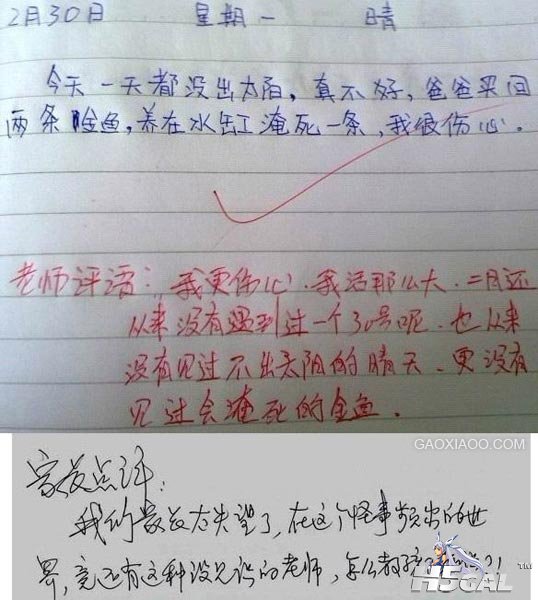 2月30日 星期一 晴
今天一天都没出太阳，真不好，爸爸买回
两条金鱼，养在水缸淹死一条，我很伤心。
老师评语：我更伤心．我活那么大．二月还
从来没有遇到过一个30号呢．也从来
没有见过不出太阳的晴天．更没有
见过会淹死的金鱼．
GAOXIAOO.COM
家长点评：
我的家长太失望了，在这个怪事频出的世
界，竟还有这种没见识的老师，怎么教孩
TM